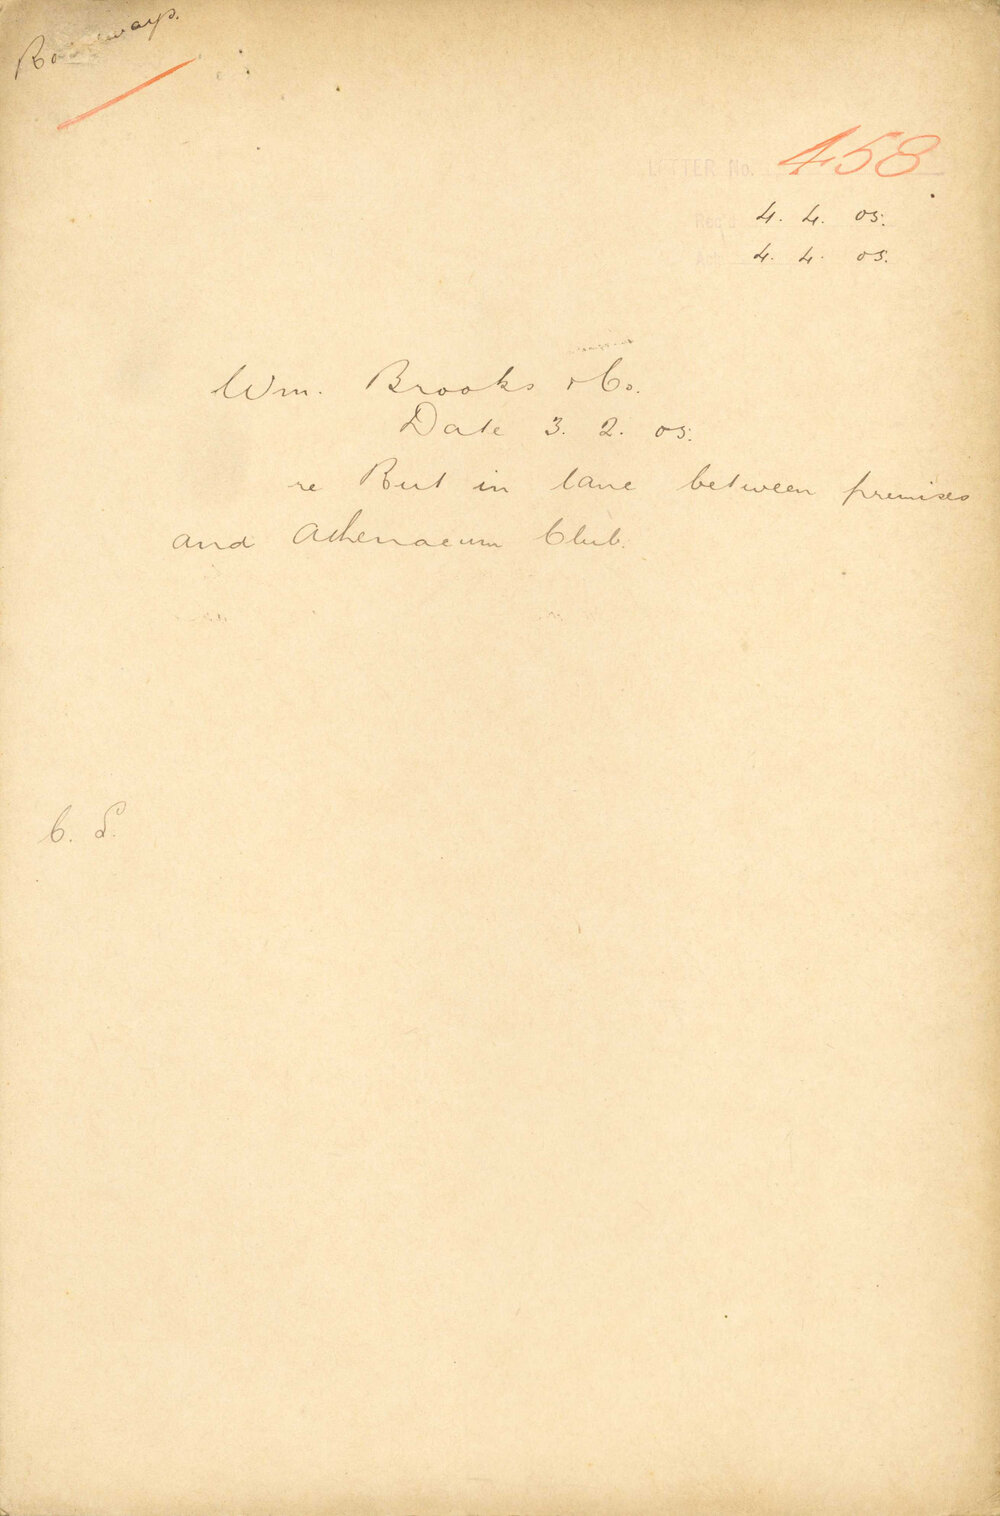 Roadways.
LETTER No. 458
Rec'd 4. 4. 05.
Ack 4. 4. 05.
Wm. Brooks & Co.
Date 3. 2. 05.
re Rut in lane between premises
and Athenaeum Club.
C. S.